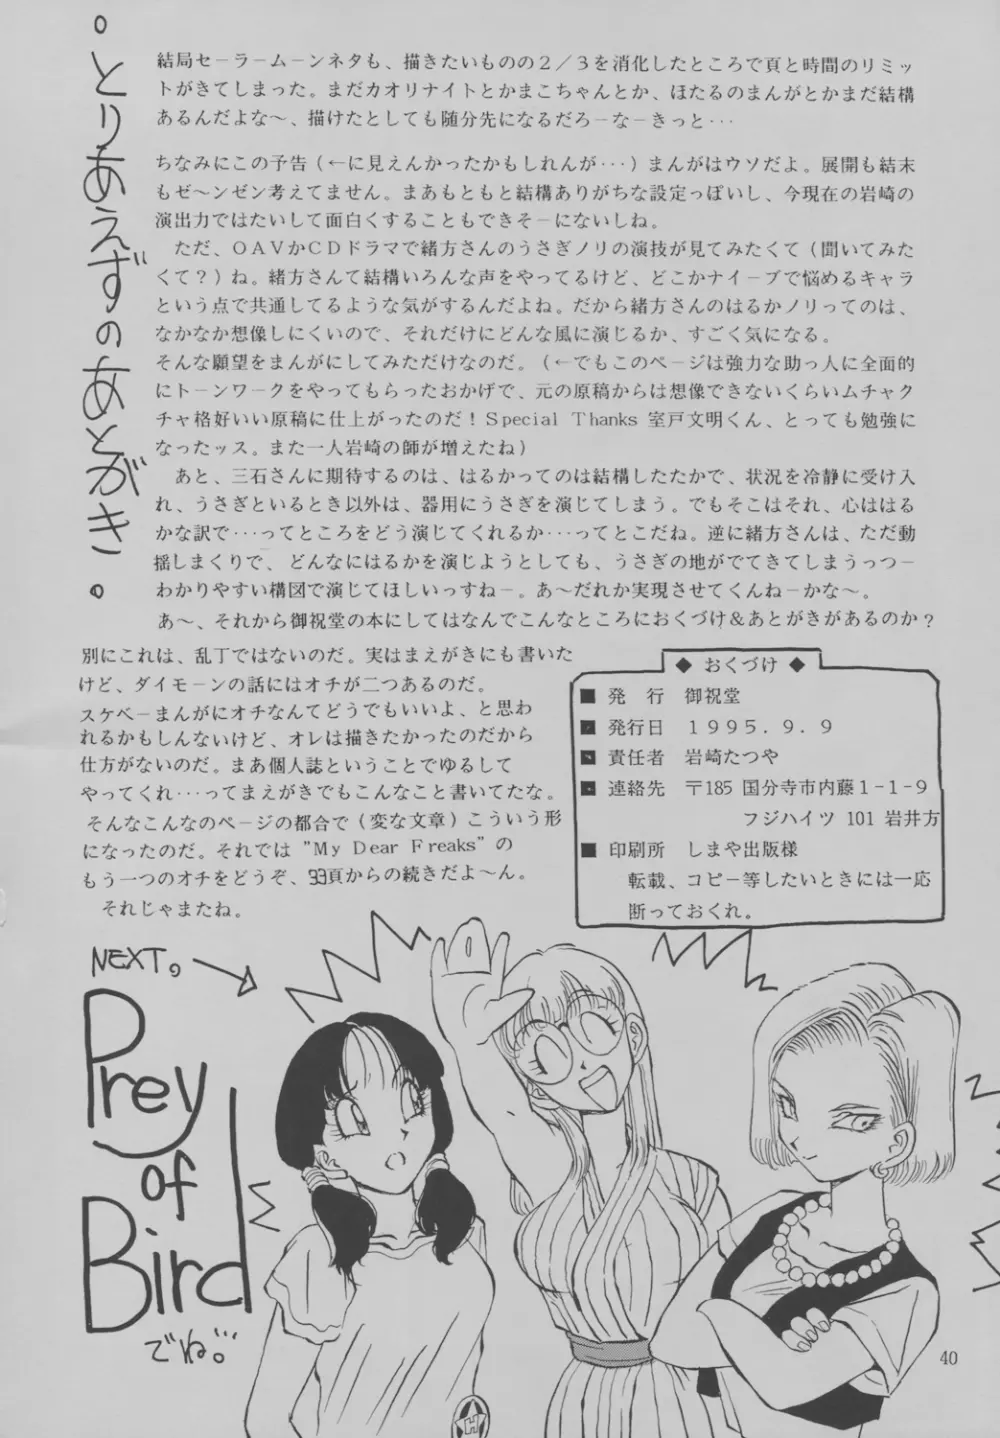 。とりあえずのあとがき。
結局セーラームーンネタも、描きたいものの２／３を消化したところで頁と時間のリミッ
トがきてしまった。まだカオリナイトとかまこちゃんとか、ほたるのまんがとかまだ結構
あるんだよな〜、描けたとしても随分先になるだろーなーきっと･･･
ちなみにこの予告（←に見えんかったかもしれんが･･･）まんがはウソだよ。展開も結末
もゼ〜ンゼン考えてません。まあもともと結構ありがちな設定っぽいし、今現在の岩崎の
演出力ではたいして面白くすることもできそーにないしね。
ただ、ＯＡＶかＣＤドラマで緒方さんのうさぎノリの演技が見てみたくて（聞いてみた
くて？）ね。緒方さんて結構いろんな声をやってるけど、どこかナイーブで悩めるキャラ
という点で共通してるような気がするんだよね。だから緒方さんのはるかノリってのは、
なかなか想像しにくいので、それだけにどんな風に演じるか、すごく気になる。
そんな願望をまんがにしてみただけなのだ。（←でもこのページは強力な助っ人に全面的
にトーンワークをやってもらったおかげで、元の原稿からは想像できないくらいムチャク
チャ格好いい原稿に仕上がったのだ！Special Thanks 室戸文明くん、とっても勉強に
なったッス。また一人岩崎の師が増えたね）
あと、三石さんに期待するのは、はるかってのは結構したたかで、状況を冷静に受け入
れ、うさぎといるとき以外は、器用にうさぎを演じてしまう。でもそこはそれ、心ははる
かな訳で･･･ってところをどう演じてくれるか･･･ってとこだね。逆に緒方さんは、ただ動
揺しまくりで、どんなにはるかを演じようとしても、うさぎの地がでてきてしまうっつー
わかりやすい構図で演じてほしいっすねー。あ〜だれか実現させてくんねーかな〜。
あ〜、それから御祝堂の本にしてはなんでこんなところにおくづけ＆あとがきがあるのか？
別にこれは、乱丁ではないのだ。実はまえがきにも書いた
けど、ダイモーンの話にはオチが二つあるのだ。
スケベーまんがにオチなんてどうでもいいよ、と思わ
れるかもしんないけど、オレは描きたかったのだから
仕方がないのだ。まあ個人誌ということでゆるして
やってくれ･･･ってまえがきでもこんなこと書いてたな。
そんなこんなのページの都合で（変な文章）こういう形
になったのだ。それでは "My Dear Freaks" の
もう一つのオチをどうぞ、33頁からの続きだよ〜ん。
それじゃまたね。
◆ おくづけ ◆
■ 発　行　御祝堂
■ 発行日　１９９５．９．９
■ 責任者　岩崎たつや
■ 連絡先　〒185 国分寺市内藤１-１-９
フジハイツ 101 岩井方
■ 印刷所　しまや出版様
転載、コピー等したいときには一応
断っておくれ。
NEXT。
Prey
of
Bird
でね...。
H
40